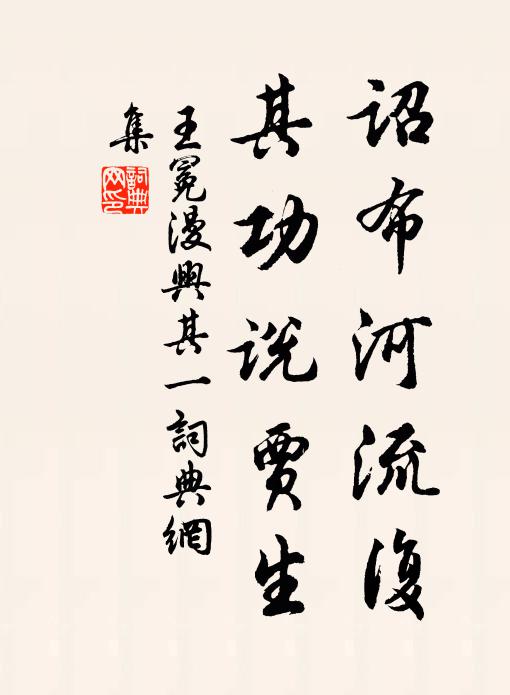 詔布河流復
其功说賈生
王冕漫興其一詞典網
集
詞典
网印